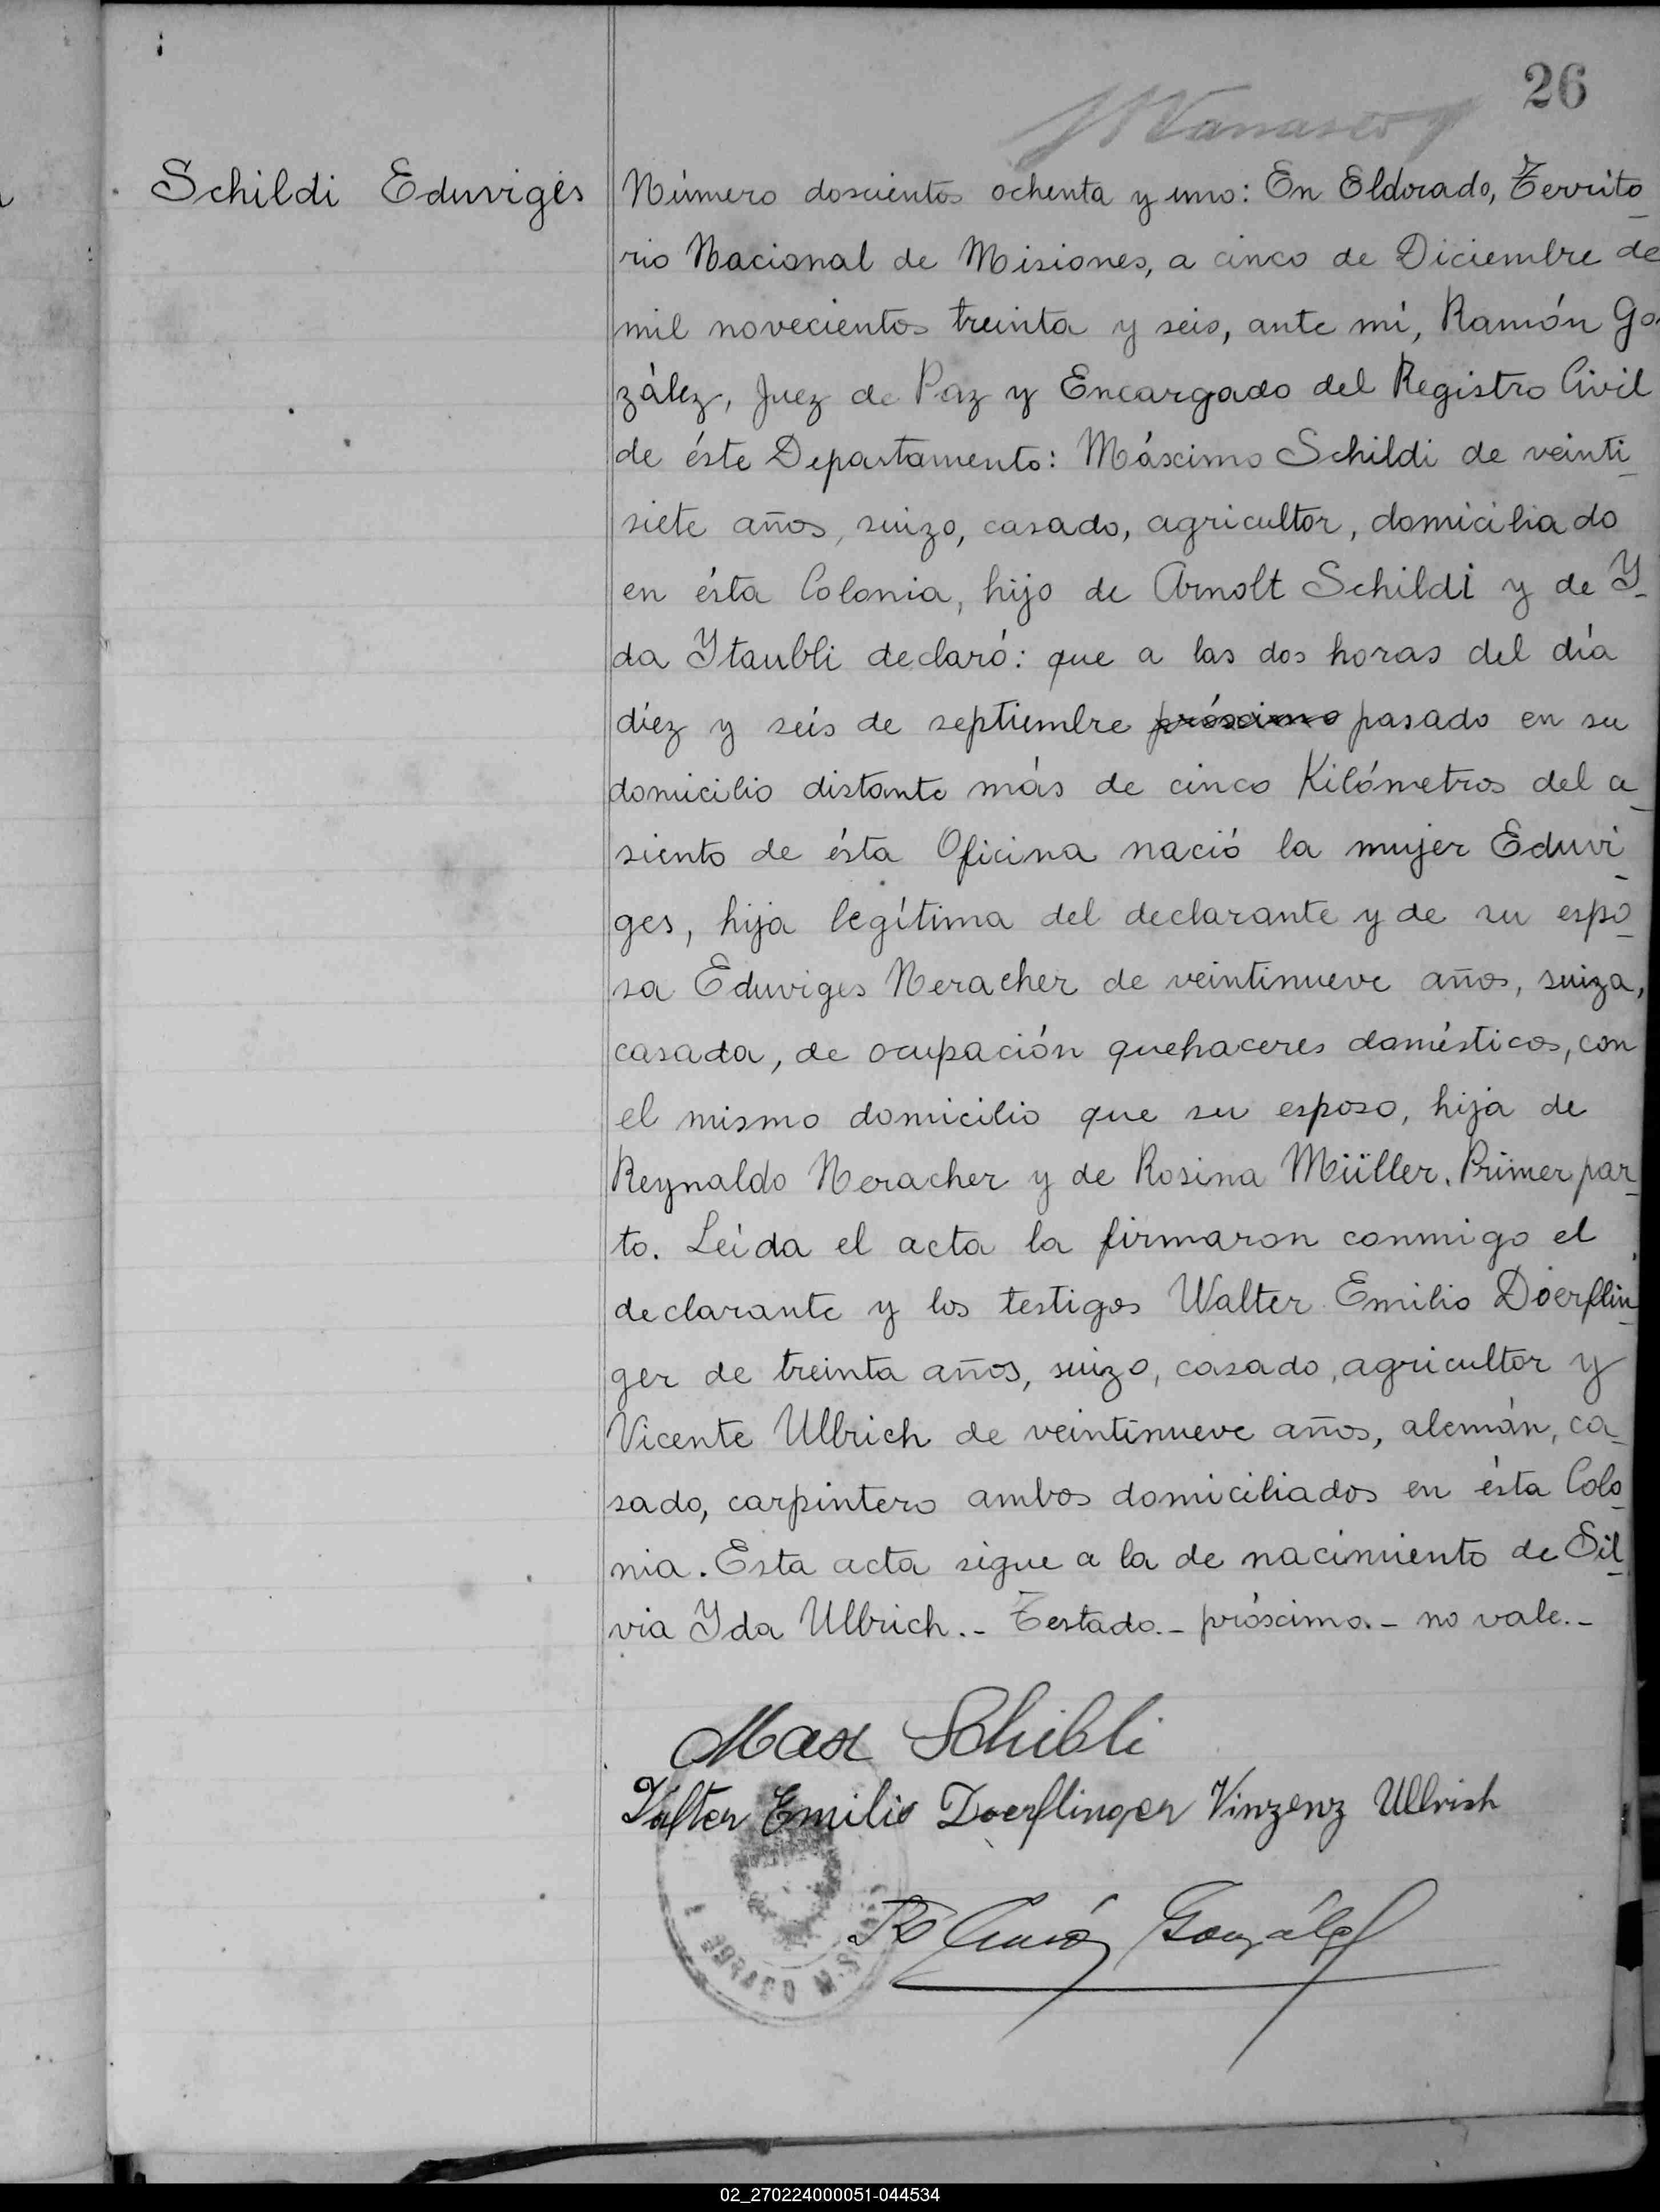 26
Schildi Eduviges
Número doscientos ochenta y uno: En Eldorado, Territo_
rio Nacional de Misiones, a cinco de Diciembre de
mil novecientos treinta y seis, ante mí, Ramón Gon
zález, Juez de Paz y Encargado del Registro Civil
de éste Departamento: Máximo Schildi de veinti_
siete años, suizo, casado, agricultor, domiciliado
en ésta Colonia, hijo de Arnolt Schildi y de Y_
da Ytaubli declaró: que a las dos horas del día
diez y seis de septiembre próximo pasado en su
domicilio distante más de cinco Kilómetros del a_
siento de ésta Oficina nació la mujer Eduvi_
ges, hija legítima del declarante y de su espo_
sa Eduviges Neracher de veintinueve años, suiza,
casada, de ocupación quehaceres domésticos, con
el mismo domicilio que su esposo, hija de
Reynaldo Neracher y de Rosina Müller. Primer par_
to. Leída el acta la firmaron conmigo el
declarante y los testigos Walter Emilio Doerflin_
ger de treinta años, suizo, casado, agricultor y
Vicente Ullrich de veintinueve años, alemán, ca_
sado, carpintero ambos domiciliados en ésta Colo_
nia. Esta acta sigue a la de nacimiento de Sil_
via Yda Ullrich._ Testado._ próximo._ no vale._
Max Schibli
Walter Emilio Doerflinger Vinzenz Ullrich
Ramón González
02_270224000051-044534